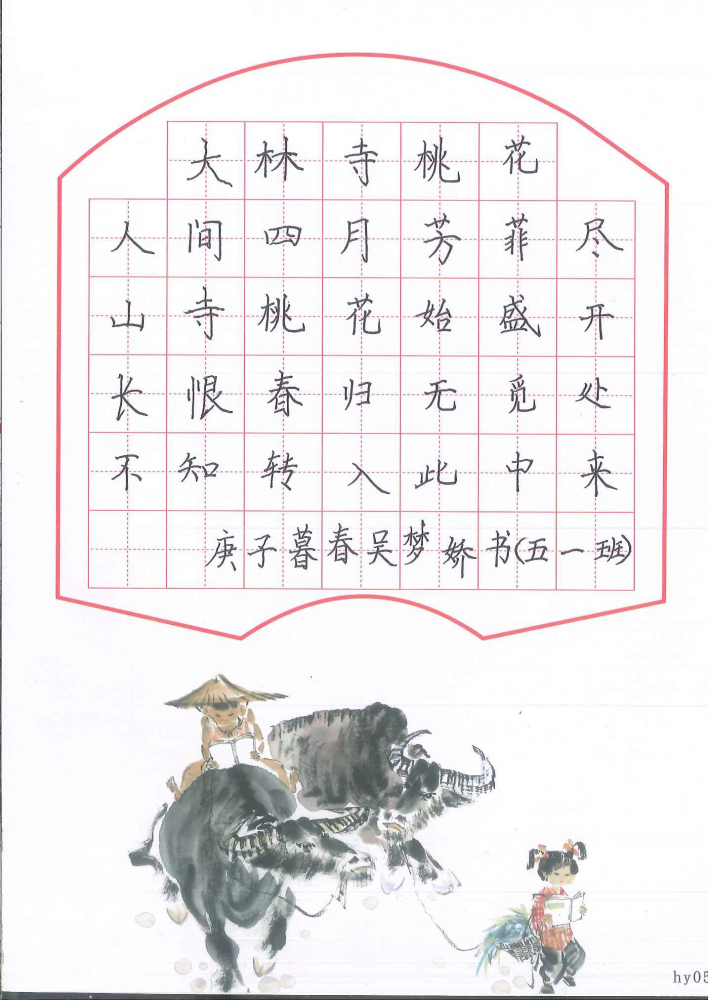 大林寺桃花
人间四月芳菲尽
山寺桃花始盛开
长恨春归无觅处
不知转入此中来
庚子暮春吴梦娇书(五一班)
hy05